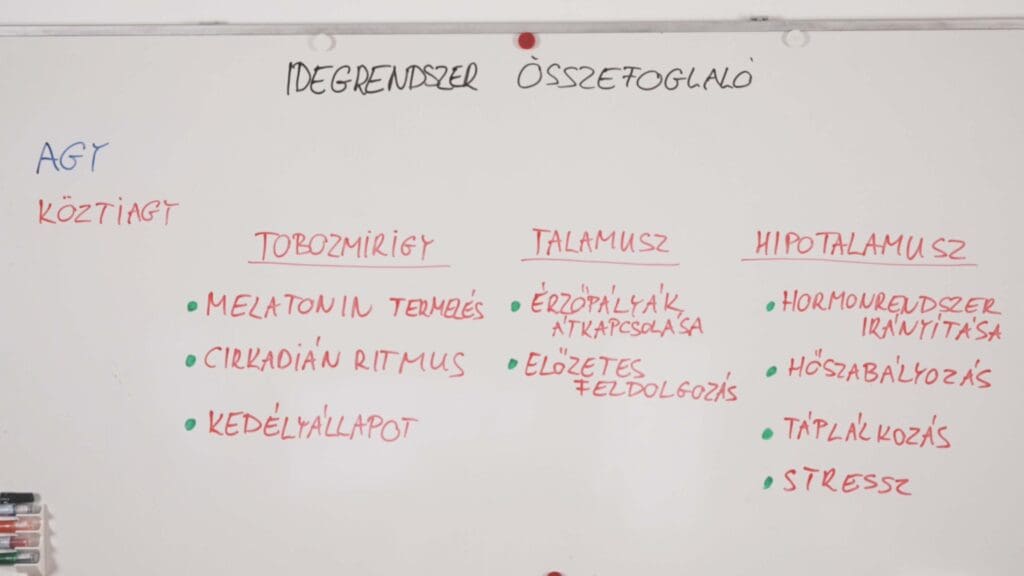 IDEGRENDSZER ÖSSZEFOGLALÓ
AGY
KÖZTIAGY
TOBOZMIRIGY
• MELATONIN TERMELÉS
• CIRKADIÁN RITMUS
• KEDÉLYÁLLAPOT
TALAMUSZ
• ÉRZŐPÁLYÁK
ÁTKAPCSOLÁSA
• ELŐZETES
FELDOLGOZÁS
HIPOTALAMUSZ
• HORMONRENDSZER
IRÁNYÍTÁSA
• HŐSZABÁLYOZÁS
• TÁPLÁLKOZÁS
• STRESSZ